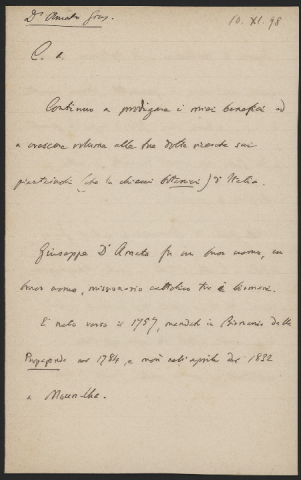 Dr Amato Gius.
10. XI. 98
C. a.
Continuo a prodigare i miei benefizi ed
a crescere volume alla tua dotta vicenda sui
(che la chiami botanici) d'Italia.
Giuseppe D'Amato fu un buon uomo, un
buon uomo, missionario cattolico tra i birmani.
È nato verso il 1757, mandato in Birmania dalla
Propaganda nel 1784, e morì nell'aprile del 1832
a